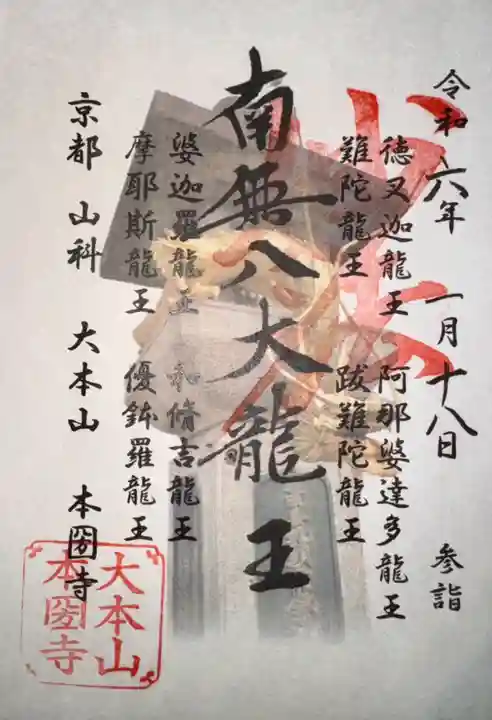 令和六年 一月十八日 参詣
徳叉迦龍王 阿那婆達多龍王
難陀龍王 跋難陀龍王
南無八大龍王
娑迦羅龍王 和脩吉龍王
摩耶斯龍王 優鉢羅龍王
京都 山科 大本山 本圀寺
大本山
本圀寺